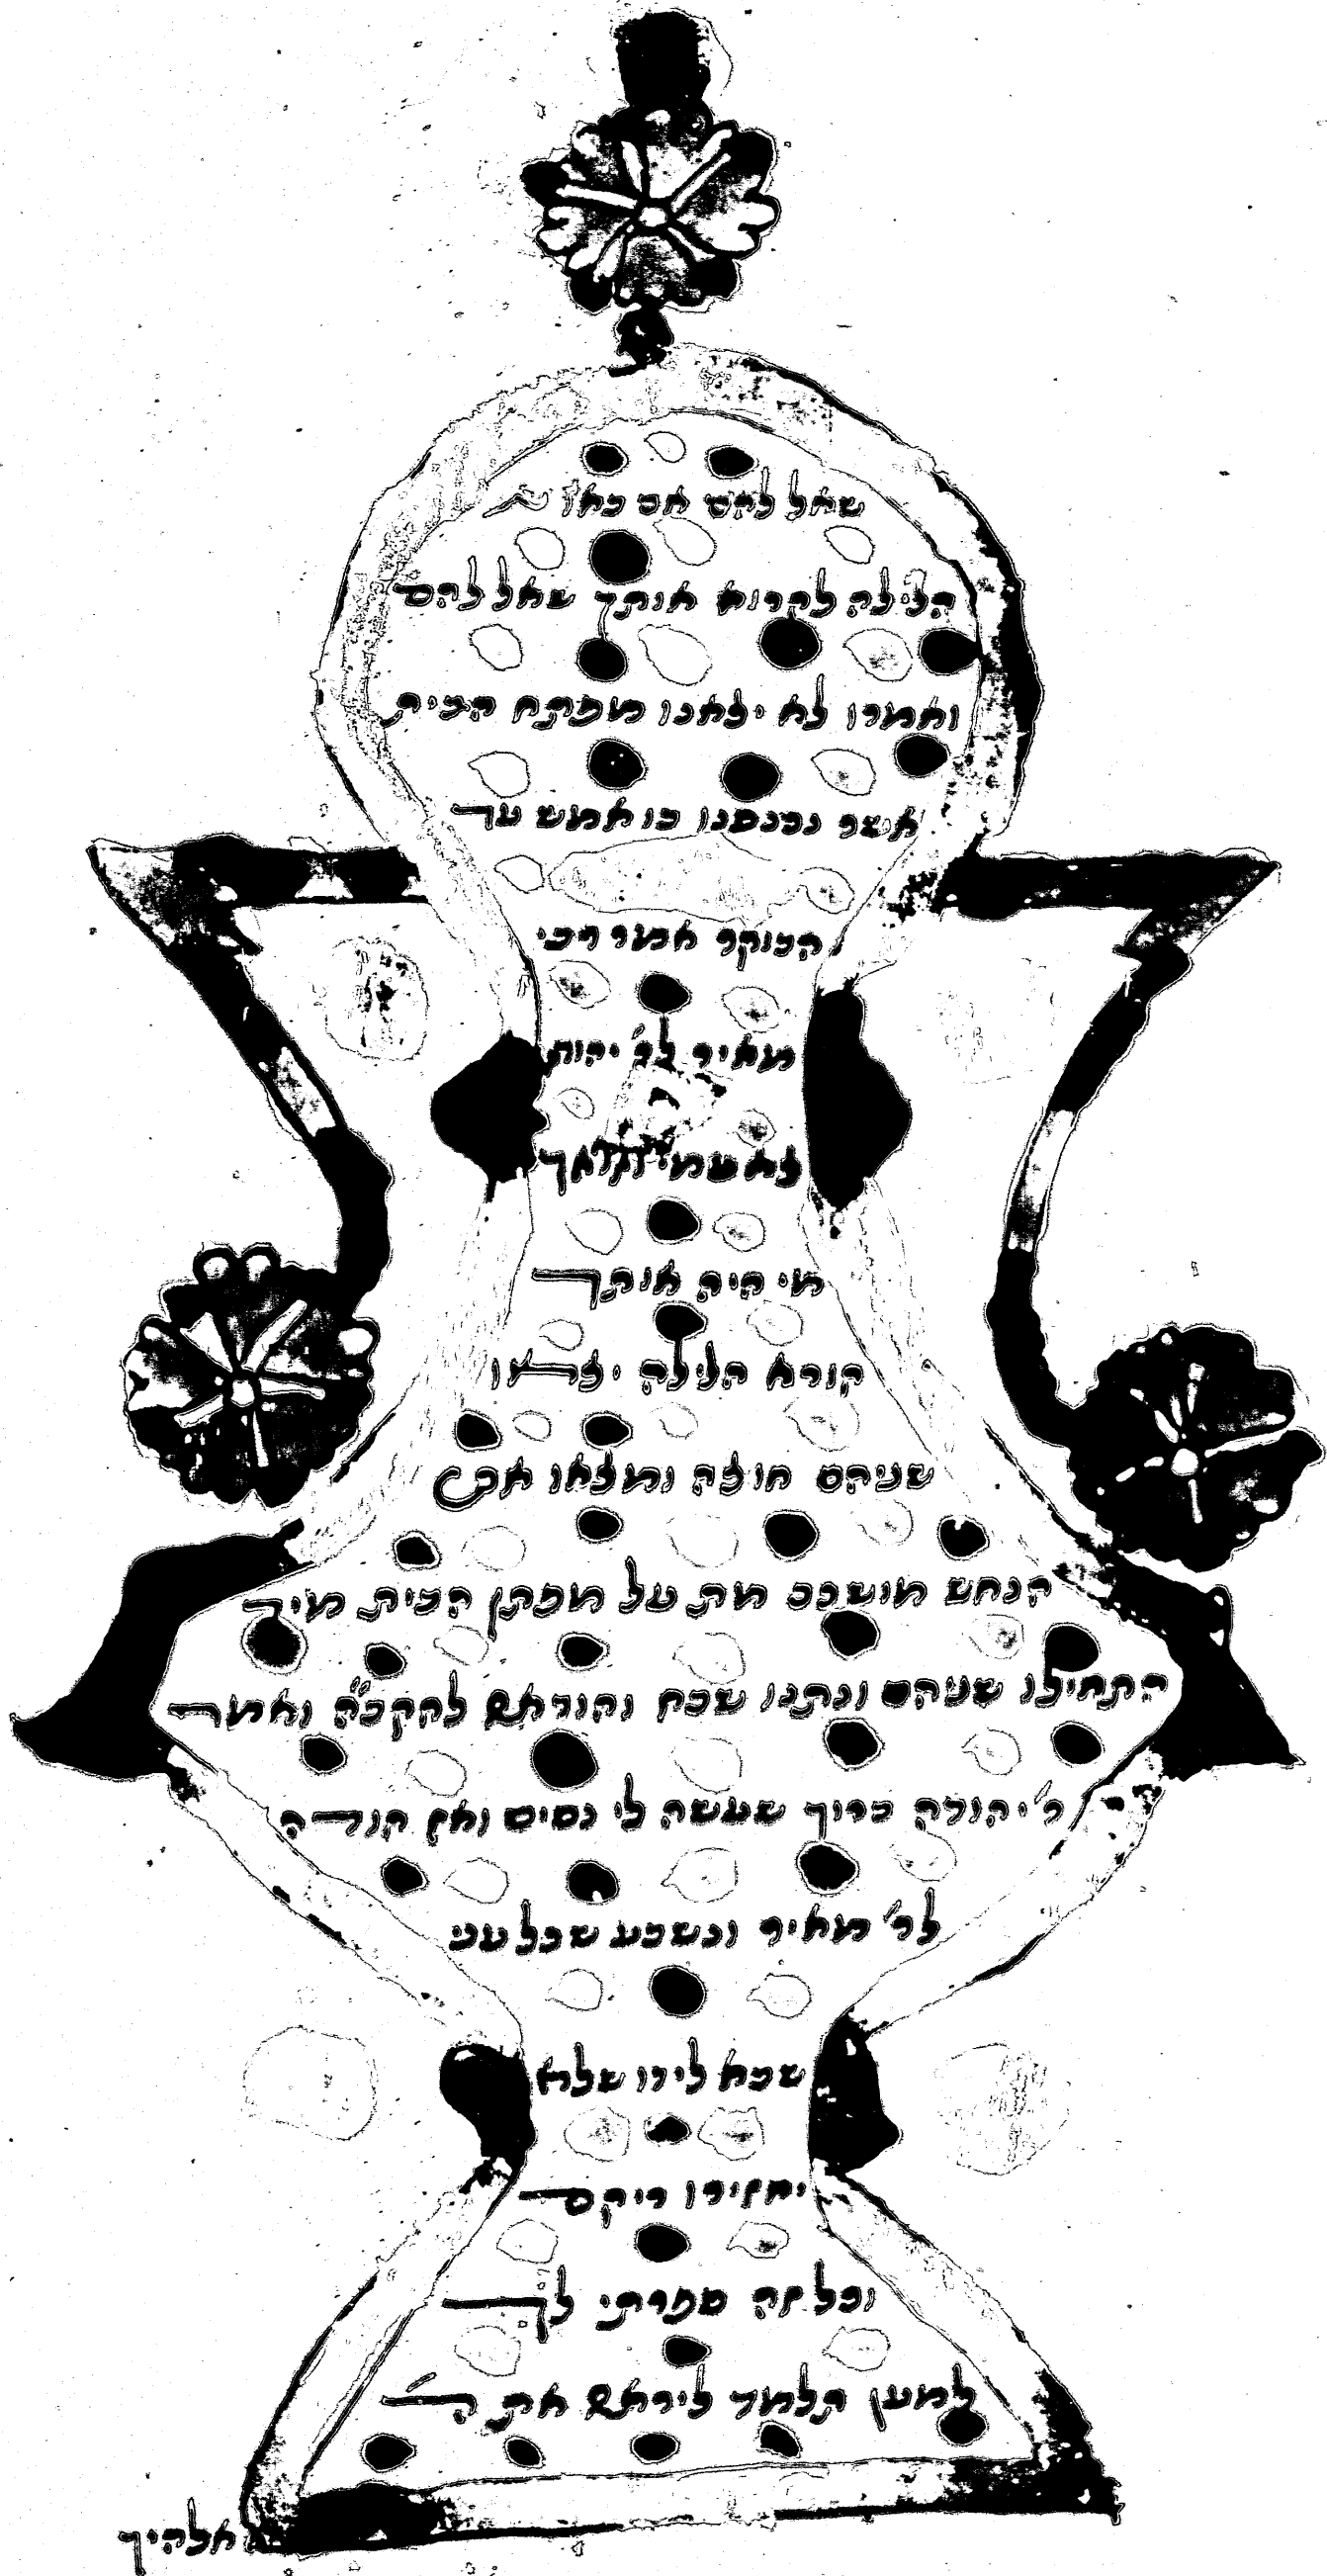 שאל להם אם באו
הלילה לקרוא אותך שאל להם
ואמרו לא יצאנו מפתח הבית
אשר נכנסנו בו אמש עד
הבוקר אמר רבי
מאיר לר׳ יהוד׳
לא
מי היה אותך
קורא הלילה יצאו
שניהם חוצה ומצאו את
הנחש מושכב מת על מפתן הבית מיד
התחילו שניהם ונתנו שבח והודאה להקב״ה ואמר
ר׳ יהודה ברוך שעשה לי נסים ואף הודה
לר׳ מאיר ונשבע שכל עני
שבא לידו שלא
יחזירו ריקם
וכל זה ספרתי לך
למען תלמד ליראה את ה׳
אלהיך